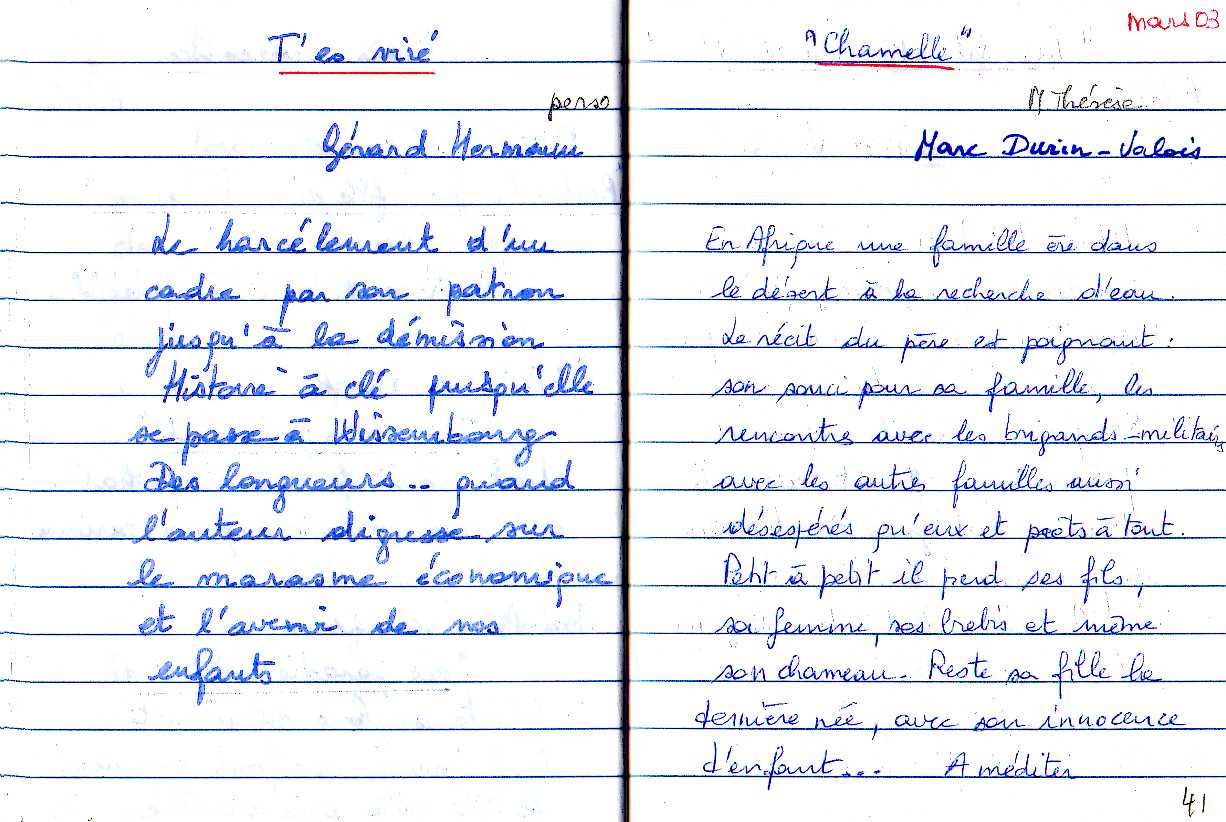 T'es viré
perso
Gérard Hermann
Le harcélement d'un
cadre par son patron
jusqu'à la démission
Histoire à clé puisqu'elle
se passe à Wissembourg
Des longueurs.. quand
l'auteur digresse sur
le marasme économique
et l'avenir de nos
enfants
mars 03
"Chamelle"
M Thérèse
Marc Durin-Valois
En Afrique une famille ère dans
le désert à la recherche d'eau.
Le récit du père est poignant :
son souci pour sa famille, les
rencontres avec les brigands-militaires
avec les autres familles aussi
désespérés qu'eux et prêts à tout.
Petit à petit il perd ses fils,
sa femme, ses brebis et même
son chameau. Reste sa fille la
dernière née, avec son innocence
d'enfant... A méditer
41